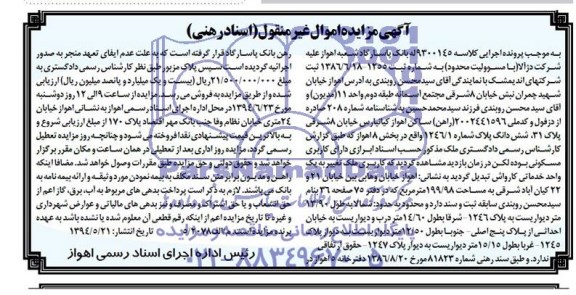 آگهی مزایده اموال غیر منقول (اسناد رهنی)
به موجب پرونده اجرایی کلاسه ۹۳۰۰۱۴۵ له بانک پاسارگاد شعبه اهواز علیه
شرکت درالا (با مسوولیت محدود) به شماره ثبت ۱۳۵۵ ۱۳۸۶/۶/۱۸ ثبت
شرکتهای اند یمشک با نمایندگی آقای سید محسن روبندی به آدرس اهواز خیابان
شهید چمران نبش خیابان ۸ شرقی مجتمع آسمانه طبقه دوم واحد ۱۱ (مدیون) و
آقای سید محسن روبندی فرزند سید محمد حسین به شناسنامه شماره ۲۰۸ صادره
از دزفول و کدملی ۲۰۰۲۴۴۱۵۹۶ (راهن) ساکن اهواز کیانپارس خیابان ۸ شرقی
پلاک ۳۱، شش دانگ پلاک شماره ۱۲۴۶/۱ واقع در بخش ۸ اهواز که طبق گزارش
کارشناس رسمی دادگستری ملک مذکور حسب اسناد ابرازی دارای کاربری
مسکونی بوده لکن در زمان بازدید مشاهده گردید که کاربری ملک تغییر به یک
واحد خدماتی کارواش تبدیل گردید به نشانی: اهواز خیابان وهابی بین خیابان ۲۱ و
۲۲ کیان آباد شرقی به مساحت ۱۹۹/۹۸ مترمربع که در دفتر ۷۵ صفحه ۳۶ بنام
سید محسن روبندی سابقه ثبت و سند دارد و محدود است: شمالا به طول
متر دیواریست به پلاک ۱۲۴۶- شرقا بطول ۱۴/۶۰ متر درب و دیواریست به خیابان
احداثی از پلاک پنج اصلی- جنوبا بطول ۱۲/۵۰ متر دیوار به دیوار پلاک
۱۲۴۵- غربا بطول ۱۵/۱۵ متر دیواریست به دیوار پلاک ۱۲۴۷- حقوق ارتفاقی
ندارد. و طبق سند رهنی شماره ۸۱۸۲۳ مورخ ۱۳۸۶/۸/۲۰ دفترخانه ۵ اهواز در
رهن بانک پاسارگاد قرار گرفته است که به علت عدم ایفای تعهد منجر به صدور
اجرائیه گردیده است. سپس پلاک مزبور طبق نظر کارشناس رسمی دادگستری به
مبلغ ۲۱/۵۰۰/۰۰۰/۰۰۰ ریال (بیست و یک میلیارد و پانصد میلیون ریال) ارزیابی
شده و از طریق مزایده بفروش می رسد. مزایده از ساعت ۹ الی ۱۲ روز دوشنبه
مورخ ۱۳۹۴/۶/۲۳ در محل اداره اجرای اسناد رسمی اهواز به نشانی اهواز خیابان
۲۴ متری خیابان نظام وفا جنب بانک مهر اقتصاد پلاک ۱۷۰ از مبلغ ارزیابی شروع و
به بالاترین قیمت پیشنهادی نقدا فروخته می شود و چنانچه روز مزایده تعطیل
رسمی گردد، مزایده روز اداری بعد از تعطیلی در همان ساعت و مکان مقرر برگزار
خواهد شد و حقوق دولتی و حق مزایده طبق مقررات وصول خواهد شد. مضافا اینکه
پرونده اجرایی. م/الف ۴۰۷۸۰۸ تاریخ انتشار: ۱۳۹۴/۵/۲۱
رئیس اداره اجرای اسناد رسمی اهواز
۰۲۱-۸۸۳۴۹۶۷۰-۵